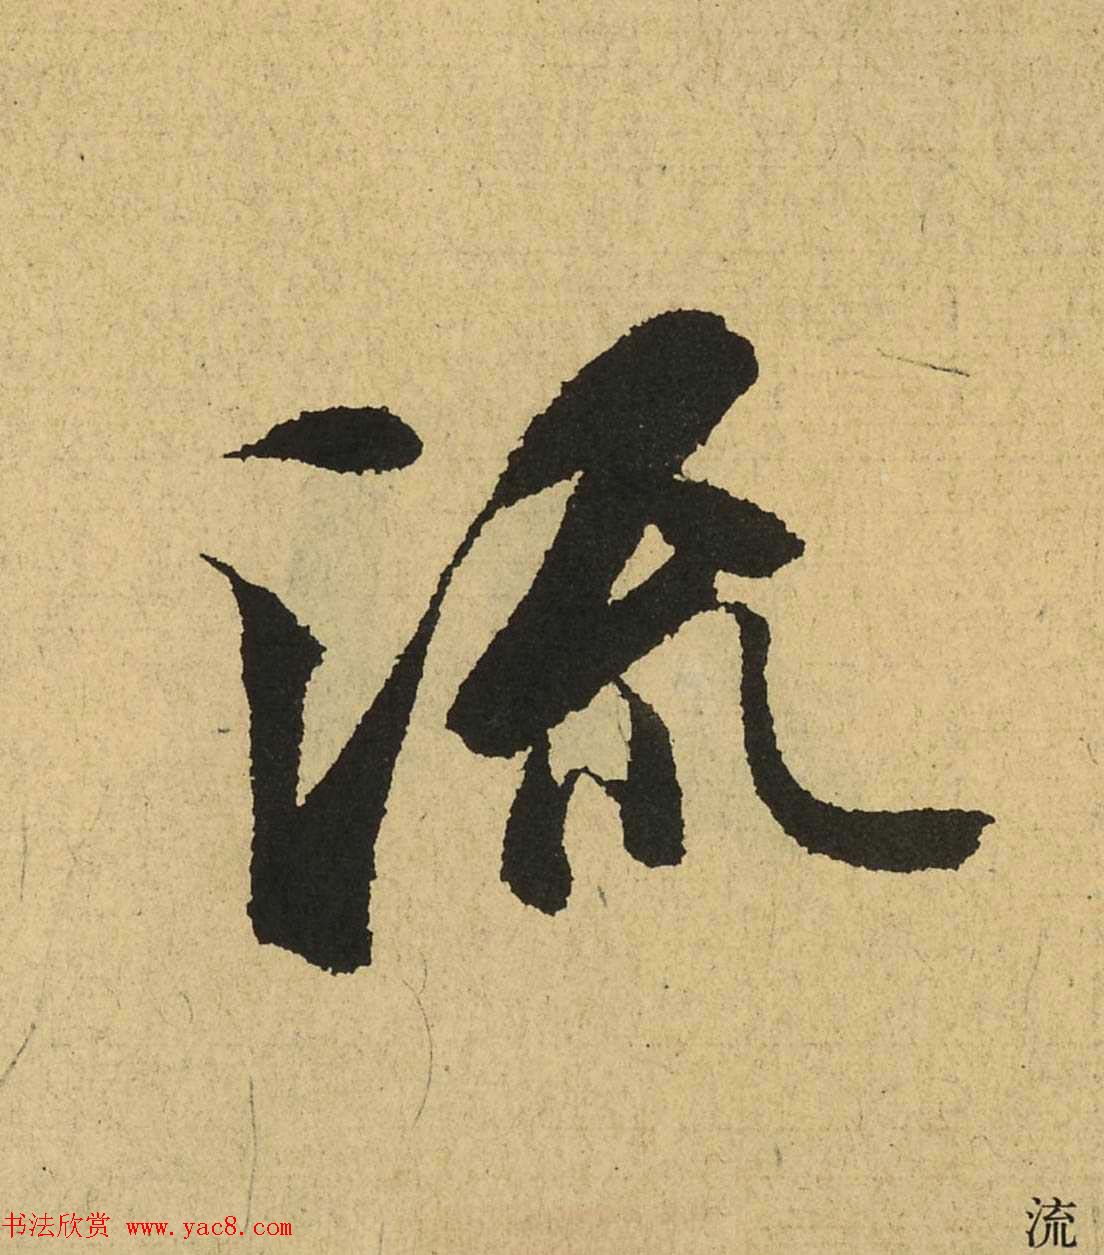 流
书法欣赏 www.yac8.com
流